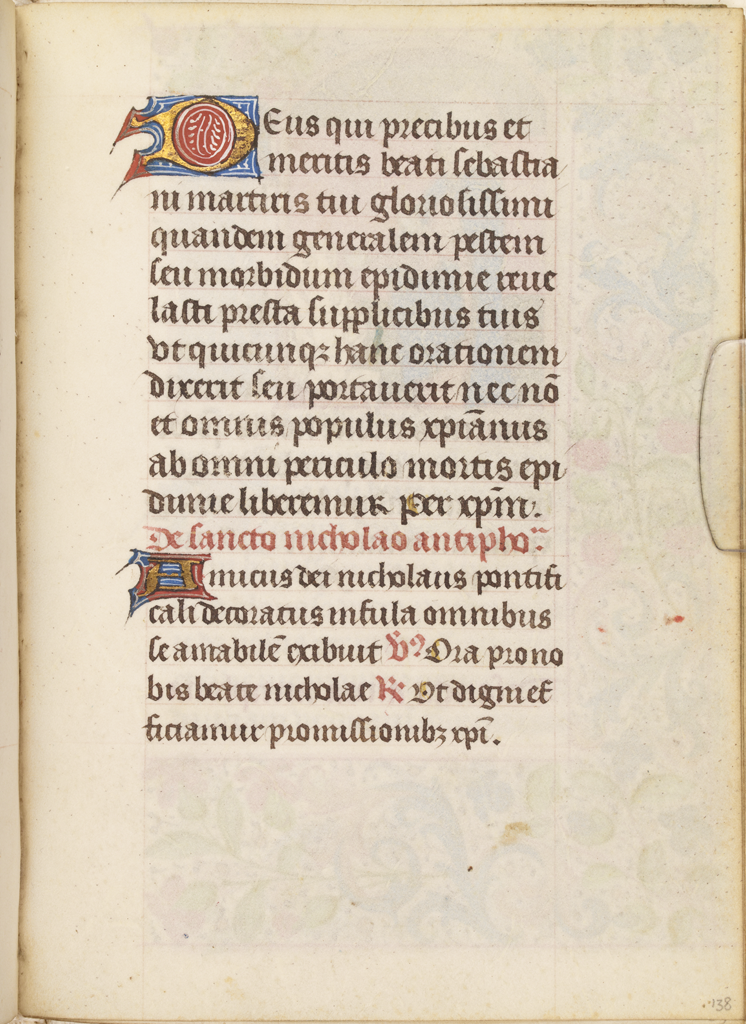 Deus qui precibus et
meritis beati sebastia
ni martiris tui gloriosissimi
quandem generalem pestem
seu morbidum epidimie reue
lasti presta supplicibus tuis
vt quicunqꝫ hanc orationem
dixerit seu portauerit nec nō
et omnis populus xp̄ianus
ab omni periculo mortis epi
dimie liberemur per xp̄m.
De sancto nicholao antipho.
Amicus dei nicholaus pontifi
cali decoratus infula omnibus
se amabilē exibuit ℣ Ora pro no
bis beate nicholae ℟ Vt digni ef
ficiamur promissionibꝫ xp̄i.
138